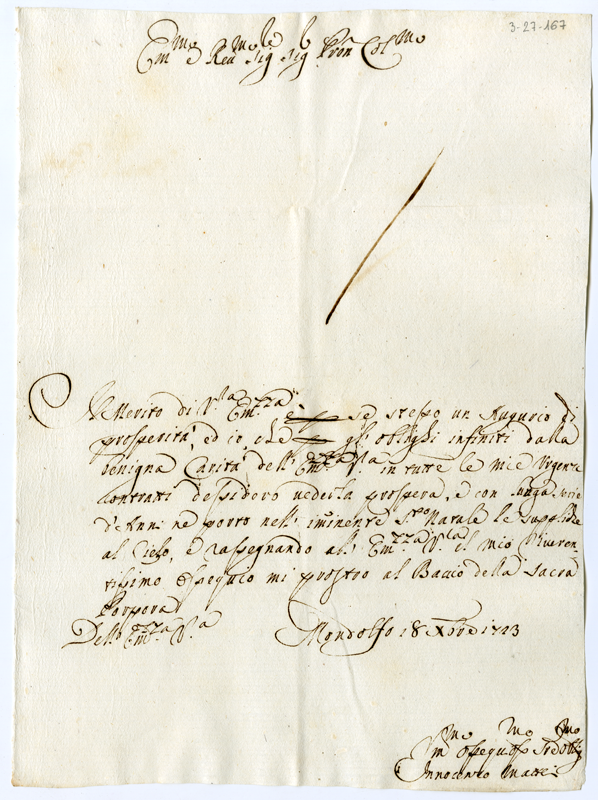 3-27-167
Em.mo e Reu.mo Sig.re Sig.r Pron Col.mo
Il Merito di V.ra Em.za è se stesso un Augurio di
prosperità, ed io, che gl'oblighi infiniti dalla
benigna Carità dell'Em.za V.ra in tutte le mie Urgenze
contratti desidero vederla prospera, e con lunga serie
d'Anni ne porto nell'iminente S.to Natale le suppliche
al Cielo, e rassegnando all'Em.za V.ra il mio Riveren-
tissimo Ossequio mi prostro al Bacio della Sacra
Porpora
Dell'Em.za V.ra
Mondolfo 18 Xbre 1723
Um.mo osseq.mo
Innocenzo Mattei